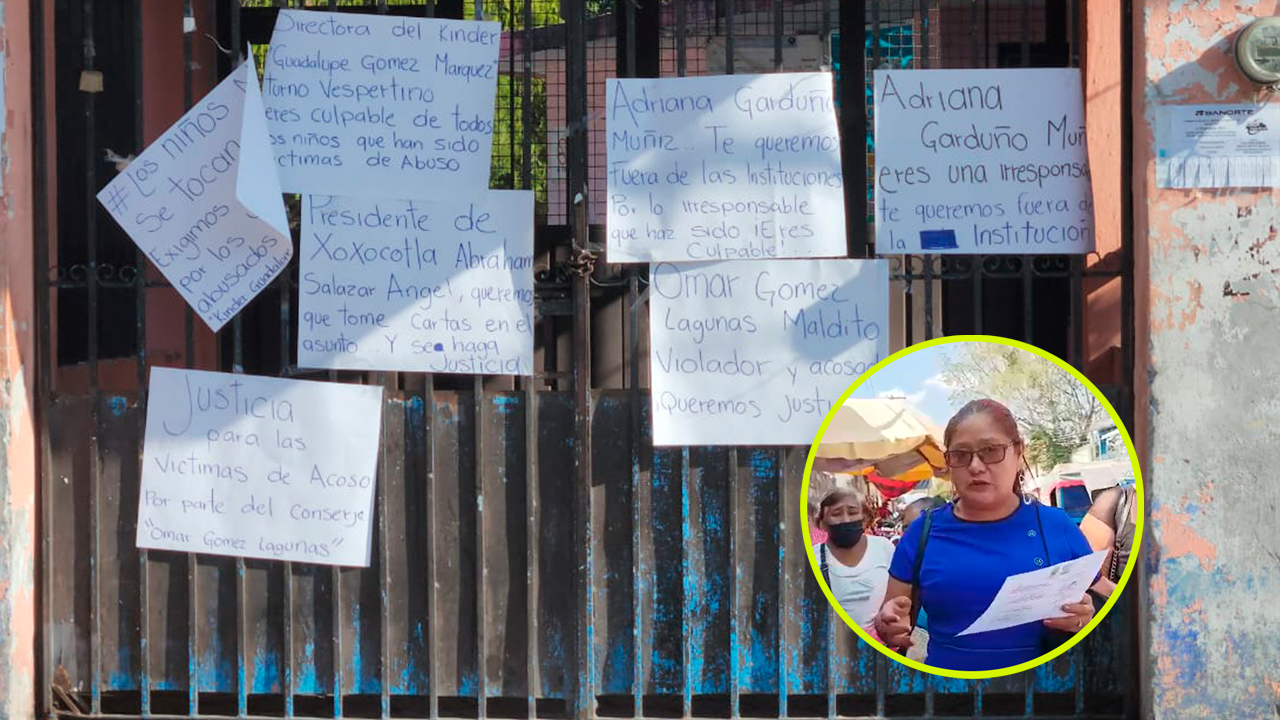 #Los niños N
Se tocan
Exigimos
por los
abusados
"Kinder Guadalupe
Directora del Kinder
"Guadalupe Gomez Marquez"
Turno Vespertino
eres culpable de todos
os niños que han sido
íctimas de Abuso
Presidente de
Xoxocotla Abraham
Salazar Angel, queremos
que tome cartas en el
asunto.. Y se haga
Justicia
Justicia
para las
Victimas de Acoso
Por parte del Conserje
"Omar Gomez Lagunas"
Adriana Garduño
Muñiz.. Te queremos
Fuera de las Instituciones
Por lo irresponsable
que haz sido ¡Eres
Culpable!...
Omar Gomez
Lagunas Maldito
Violador y acosa
¡Queremos Justi
Adriana
Garduño Muñ
eres una irresponsa
te queremos fuera d
la Institución
BANORTE